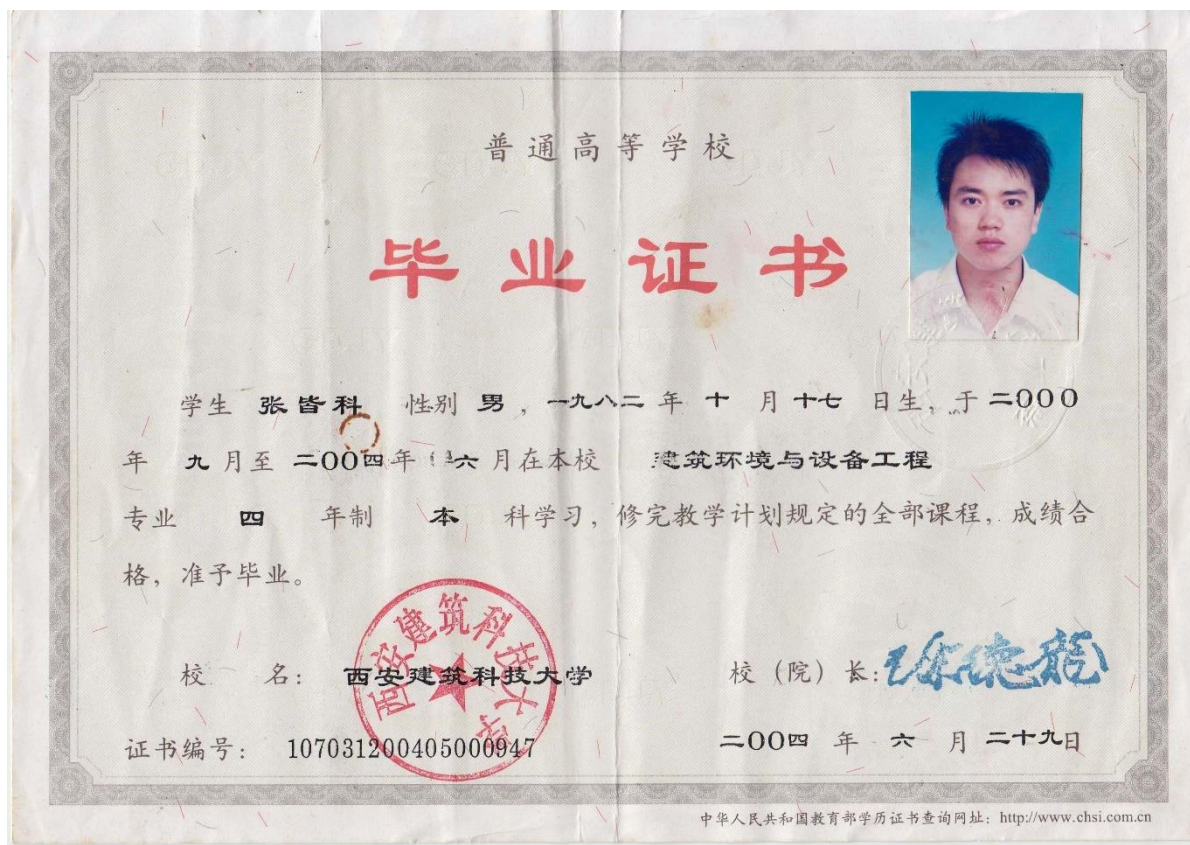 普通高等学校
毕业证书
学生 张皆科 性别 男，一九八二 年 十 月 十七 日生，于 二000
年 九 月至 二00四年 六 月在本校 建筑环境与设备工程
专业 四 年制 本 科学习，修完教学计划规定的全部课程，成绩合
格，准予毕业。
西安建筑科技大学
校 名： 西安建筑科技大学 校（院）长：
证书编号： 107031200405000947 二00四 年 六 月 二十九日
中华人民共和国教育部学历证书查询网址：http://www.chsi.com.cn